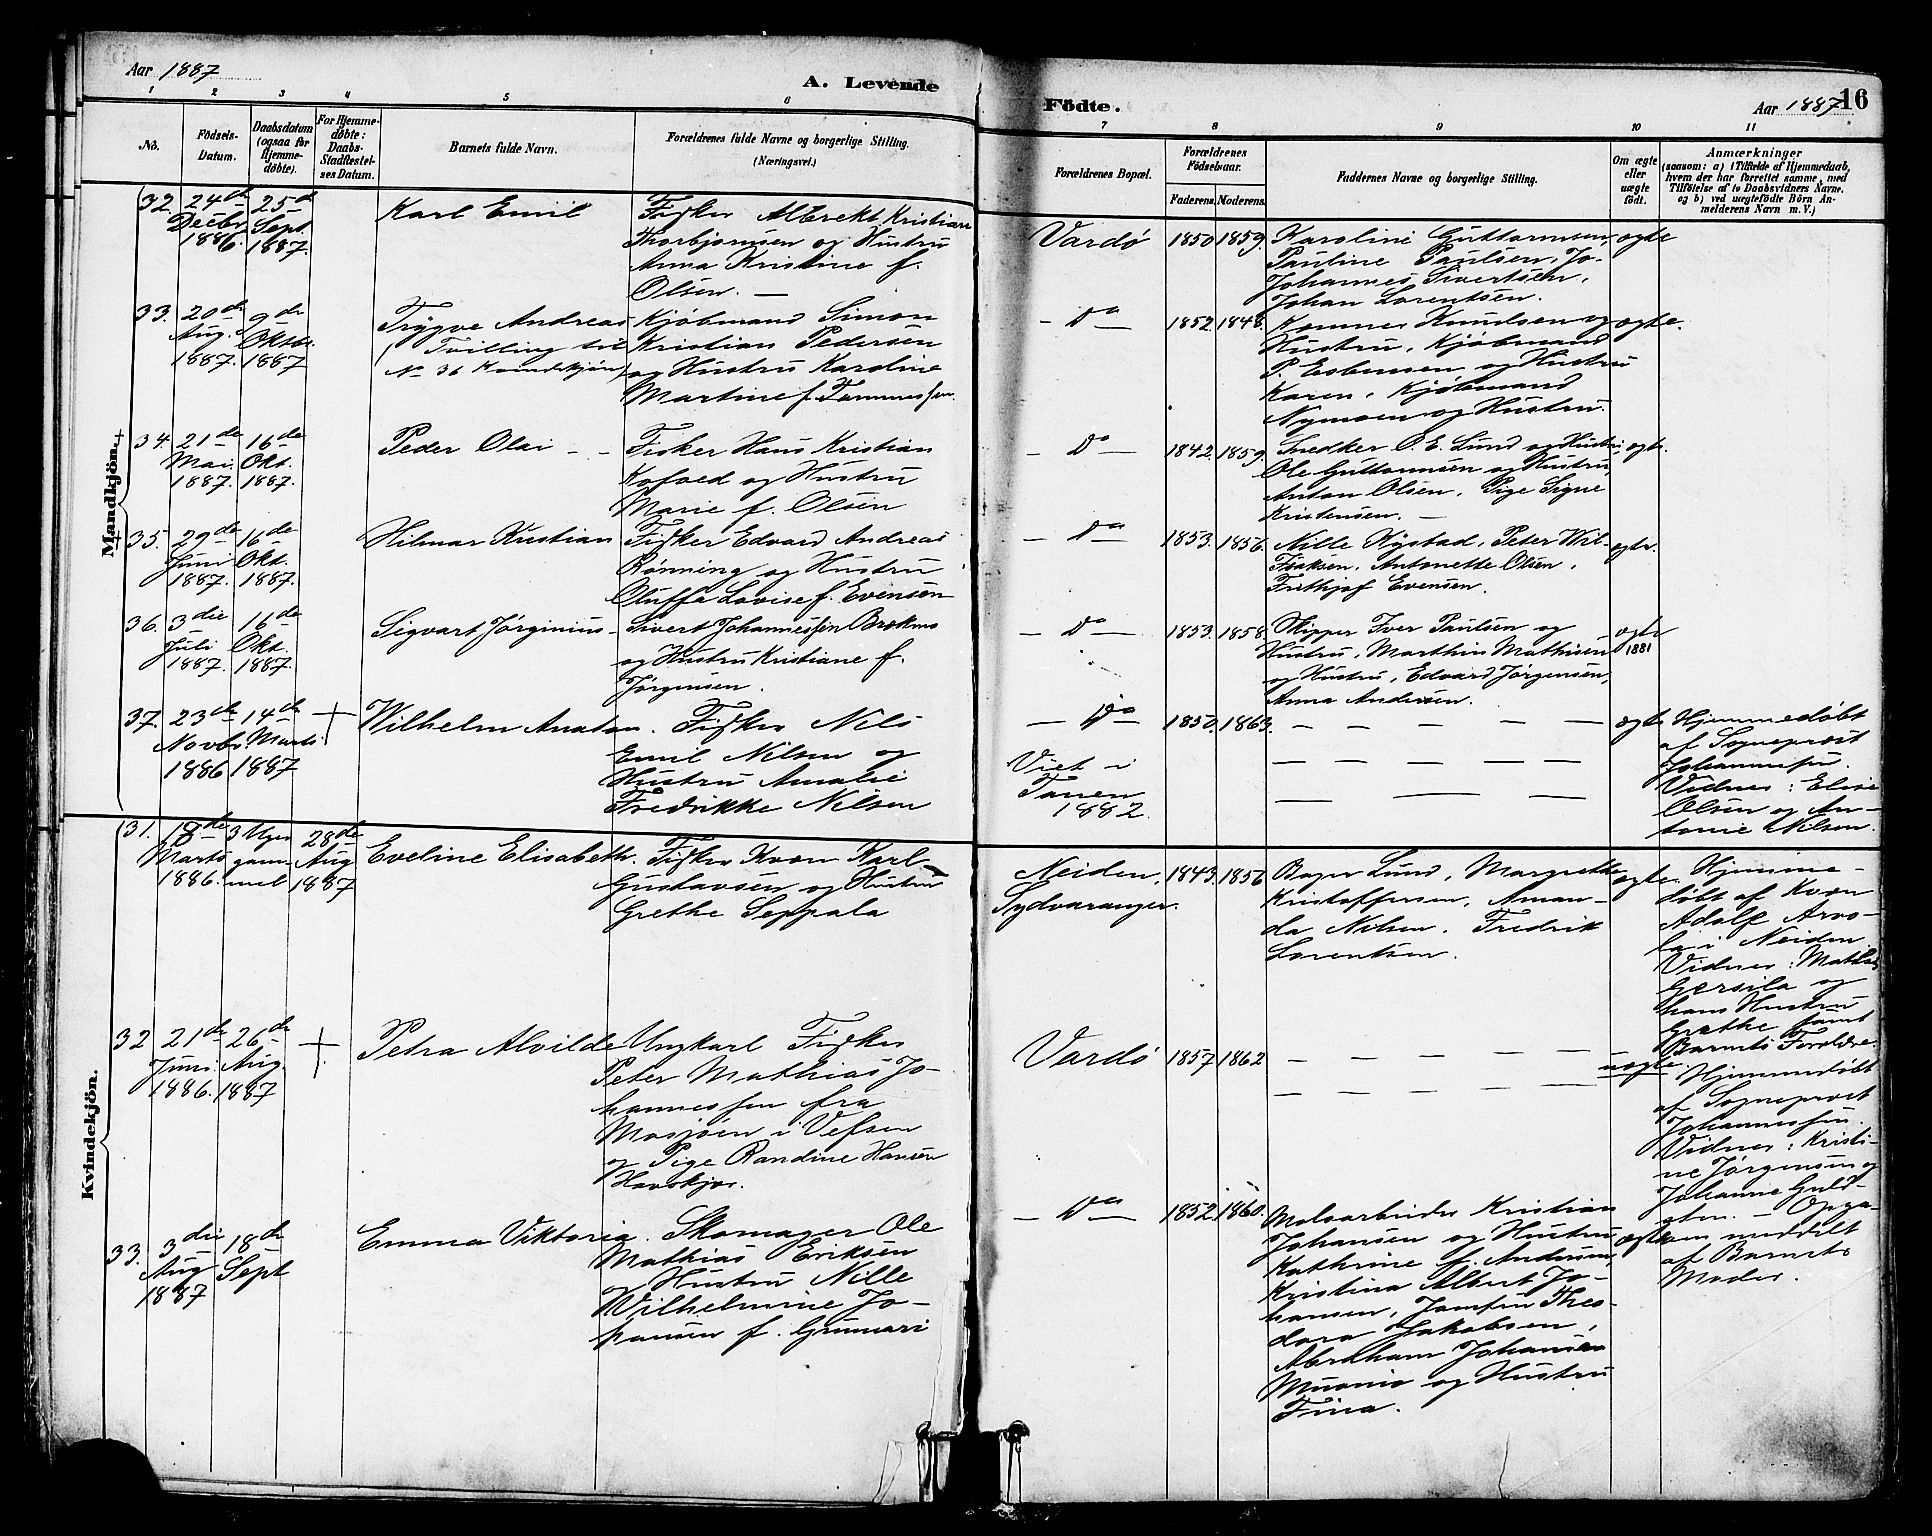 Aar 1887
A. Levende
Födte.
Aar 1887
16
1 2 3 4 5 6 7 8 9 10 11
No.
Födsels-
Datum.
Daabsdatum
(ogsaa for
Hjemme-
döbte).
For Hjemme-
döbte:
Daabs-
Stadfæstel-
ses Datum.
Barnets fulde Navn.
Forældrenes fulde Navne og borgerlige Stilling.
(Næringsvei.)
Forældrenes Bopæl.
Forældrenes
Födselsaar.
Faderens. Moderens.
Faddernes Navne og borgerlige Stilling.
Om ægte
eller
uægte
födt.
Anmærkninger
(saasom: a) i Tilfælde af Hjemmedaab,
hvem der har forrettet samme, med
Tilföielse af to Daabsvidners Navne,
og b) ved uægtefödte Börn An-
melderens Navn m. V.)
Mandkjön.
32
24de
Decbr
1886.
25d
Sept
1887.
Karl Emil
Fisker Albrekt Kristian
Thorbjørnsen og Hustru
Anna Kristine f.
Olsen. —
Vardø
1850
1859.
Karoline Guttormsen,
Pauline Paulsen, Jo-
Johannes Sivertsen,
Johan Lorentsen.
ægte
33.
20de
Aug.
1887.
9de
Oktbr.
1887
Trygve Andreas
(Tvilling til
No 36 Kvindekjøn)
Kjøbmand Simon
Kristian Pedersen
og Hustru Karoline
Martine f. Tønnessen.
— Do —
1852.
1848.
Knudsen og
Hustru, Kjøbmand
P. Esbensen og Hustru
Karen, Kjøbmand
Nymoen og Hustru.
ægte.
34.
21de
Mai.
1887.
16de
Okt.
1887.
Peder Olai - -
Fisker Hans Kristian
Kofoed og Hustru
Marie f. Olsen
— Do —
1842.
1859.
Snedker O. E. Lund og Hustru,
Ole Guttormsen og Hustru
Anton Olsen, Pige Signe
Kristensen. —
ægte.
35.
29de
Juni
1887.
16de
Okt.
1887.
Hilmar Kristian
Fisker Edvard Andreas
Rønning og Hustru
Oluffa Lovise f. Evensen
— Do —
1853.
1856.
Nille Nystad, Peter Wil-
Isaksen, Antonette Olsen,
Frithjof Evensen.
ægte.
36.
3die
Juli
1887.
16de
Okt.
1887.
Sigvart Jørginius
Sivert Johannessen
og Hustru Kristiane f.
Jørgensen.
— Do —
1853.
1858.
Skipper Iver Paulsen og
Hustru, Marthin Mathisen
og Hustru, Edvard Jørgensen,
Anna Andersen.
ægte
1881
37.
23de
Novbr.
1886
14de
Marts
1887
+
Wilhelm Anatan.
Fisker Nils
Emil Nilsen og
Hustru Amalie
Fredrikke Nilsen
— Do
Viet i
Tanen
1882.
1850.
1863.
— — — — —
— — — — —
— — — — —
ægte
Hjemmedøbt
af Sogneprest
Johannessen.
Vidner: Elise
Olsen og An-
tonie Nilsen.
Kvindekjön.
31.
18de
Marts
1886.
3 Uger
gam-
mel
28de
Aug
1887
Eveline Elisabeth.
Fisker Kvæn Karl
Gustavsen og Hustru
Grethe Seppala
Neiden,
Sydvaranger.
1843.
1856
Bager Lund, Margrethe
Kristoffersen, Aman-
da Nilsen, Fredrik
Lorentsen.
ægte.
Hjemme-
døbt af Kvæn
Adolf Arvo-
la i Neiden
Vidner: Mathis
Gersila og
hans Hustru
Grethe samt
Barnets Forældre.
32
21de
Juni
1886.
26de
Aug.
1887
+
Petra Alvilde
Ungkarl Fisker
Peter Mathias Jo-
hannessen fra
Mosjøen i Vefsen
og Pige Randine Hansen
Havskjær.
Vardø
1857
1862
— — — — —
— — — — —
uægte.
Hjemmedøbt
af Sogneprest
Johannessen.
Vidner: Kristi-
ne Jørgensen og
Johanne Guld-
agten. — Opga-
ven meddelt
af Barnets
Moder.
33.
3die
Aug
1887
18de
Sept
Emma Viktoria.
Skomager Ole
Mathias Eriksen
og Hustru Nille
Wilhelmine Jo-
hansen f. Grunnari
— Do —
1852.
1860.
Malsarbeider Kristian
Johansen og Hustru
Kathrine f. Andersen,
Kristina Albert Jo-
hansen, Jomfru Theo-
dora Jakobsen,
Abraham Johansen
Muonio og Hustru
Fina.
ægte